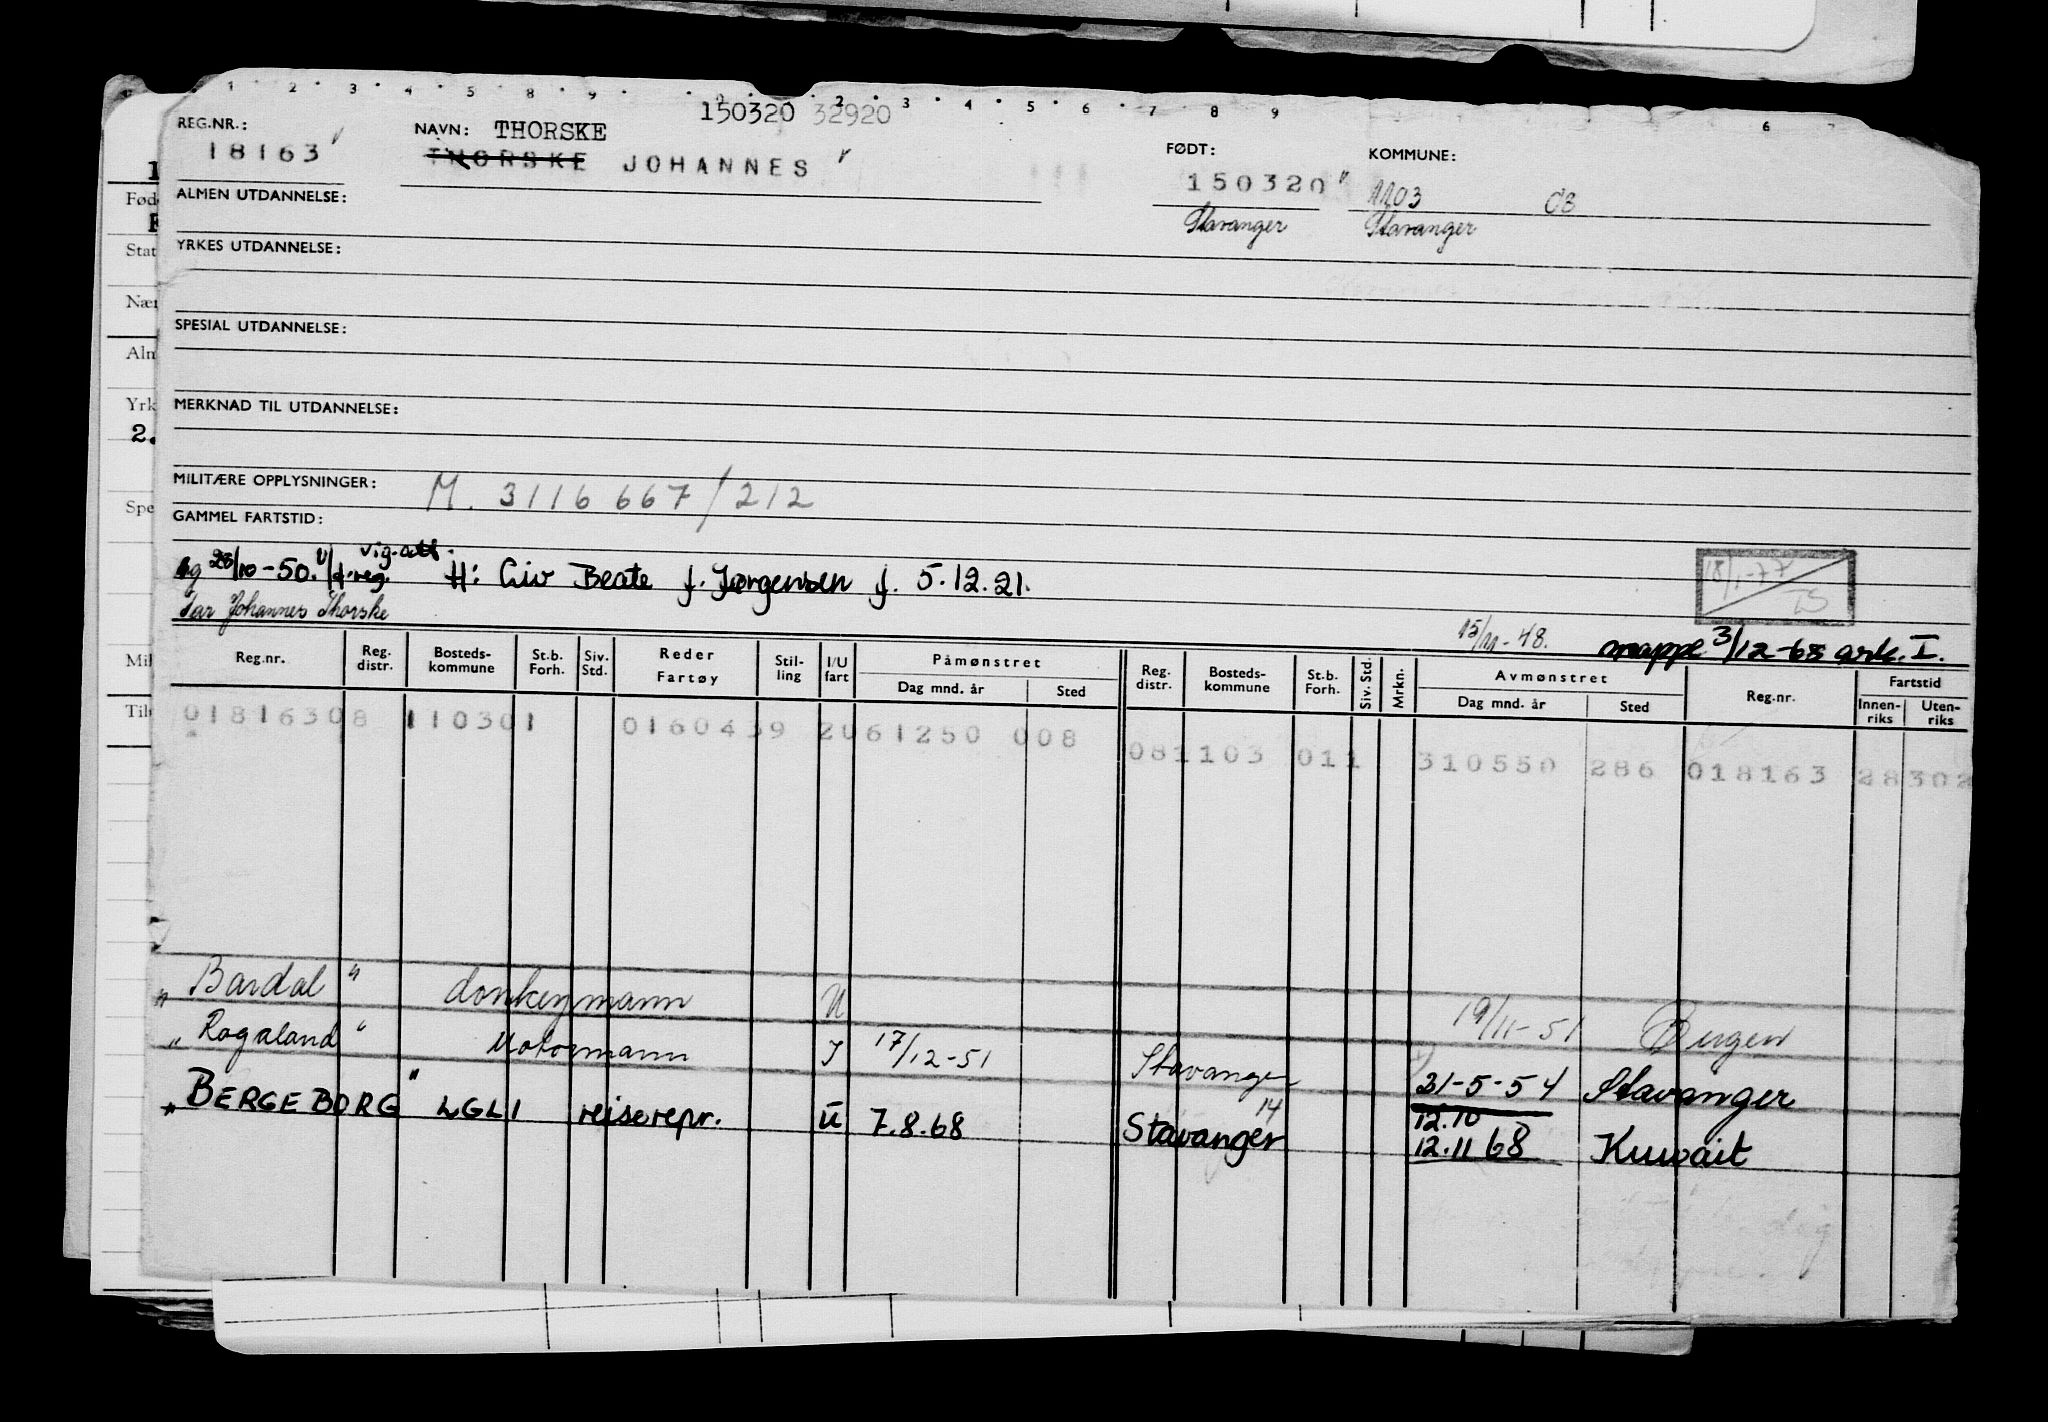 150320 32920
REG.NR.: NAVN: THORSKE FØDT: KOMMUNE:
18163 THORSKE JOHANNES 150320 1103 OB
Stavanger Stavanger
ALMEN UTDANNELSE:
YRKES UTDANNELSE:
SPESIAL UTDANNELSE:
MERKNAD TIL UTDANNELSE:
MILITÆRE OPPLYSNINGER: M. 3116667/212
GAMMEL FARTSTID:
28/10-50. vig. att. H: Liv Beate f. Jørgensen f. 5.12.21.
18/1-77 TS
Far Johannes Thorske
15/11-48. mappe 3/12-68 ark. I.
Reg.nr. Reg. distr. Bosteds-kommune St.b. Forh. Siv. Std. Reder Fartøy Stil-ling I/U fart Påmønstret Dag mnd. år Sted Reg. distr. Bosteds-kommune St.b. Forh. Siv. Std. Mrkn. Avmønstret Dag mnd. år Sted Reg.nr. Fartstid Innen-riks Uten-riks
01816308 110301 0160439 2061250 008 081103 011 310550 286 018163 28302
"Bardal" donkeymann U 19/11-51 Bergen
"Rogaland" Motormann I 17/12-51 Stavanger 21-5-54 Stavanger
"BERGEBORG" LGLI reiserepr. U 7.8.68 Stavanger 14 12.10 12.11 68 Kuwait